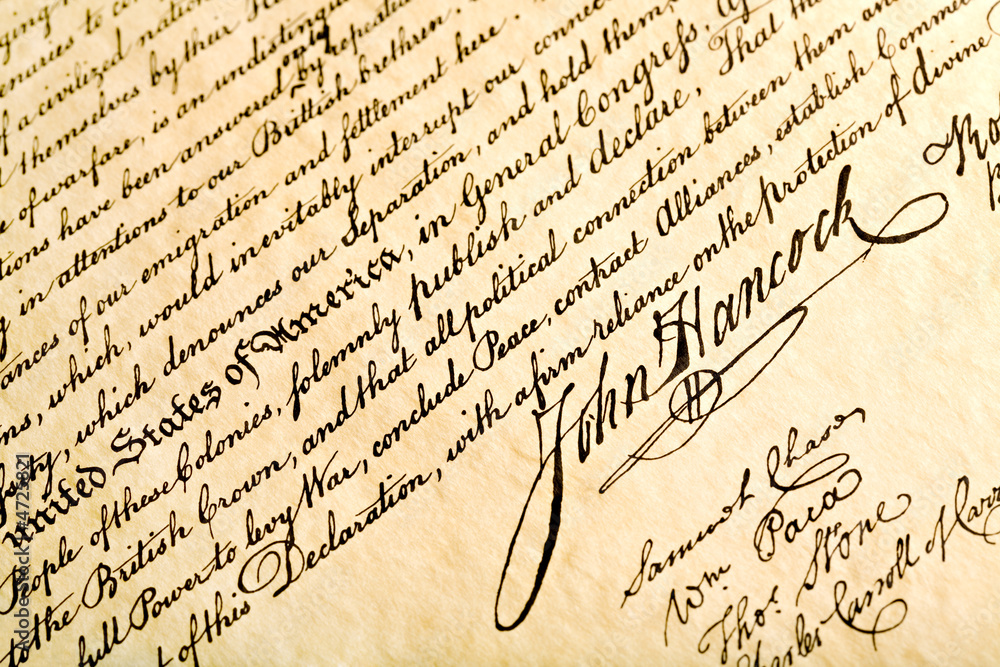 enaries to
of a civilized nation
themselves by their
e of warfare, is an undistinguis
tions have been answered only by repeated
g in attentions to our Brittish brethren.
ances of our emigration and ſettlement here
ns, which, would inevitably interrupt our connec
ſity, which denounces our Separation, and hold them,
United States of America, in General Congreſs,
People of these Colonies, ſolemnly publish and declare, That the
to the British Crown, and that all political connection between them and
full Power to levy War, conclude Peace, contract Alliances, establish Comme
t of this Declaration, with a firm reliance on the protection of divine
John Hancock
Samuel Chase,
Wm Paca
Thos. Stone
Charles Carroll of Carr